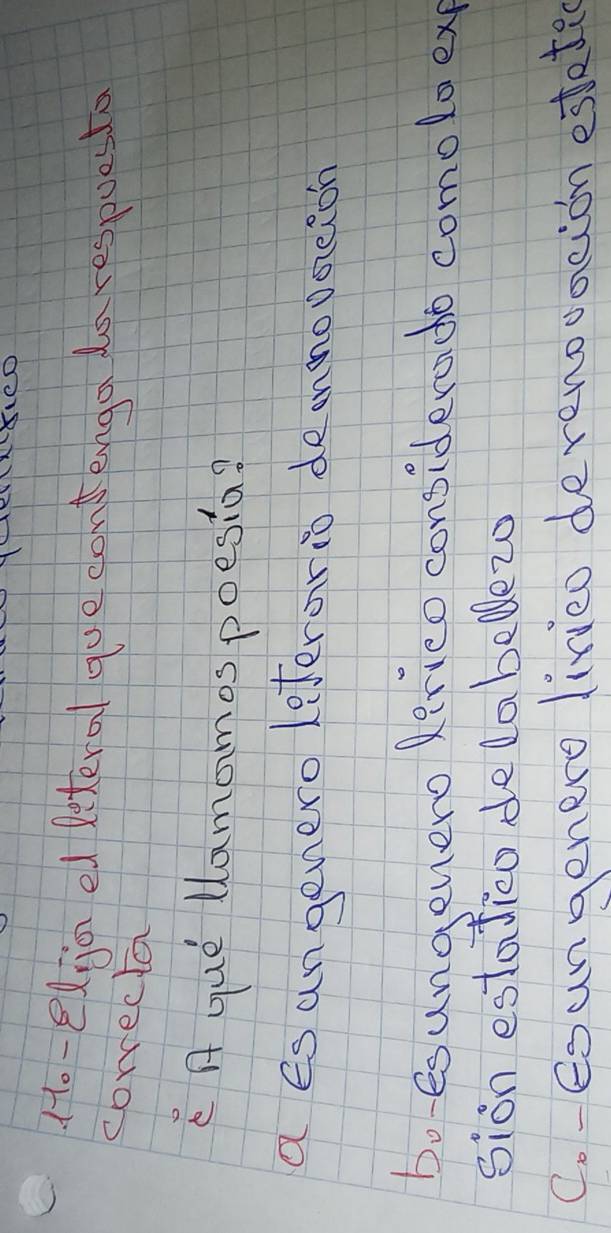 11.- Elija el literal que contenga la respuesta
correcta
¿ A qué llamamos poesía?
a Es un genero literario de innovación
b.- Es un genero lírico considerado como la exp
sión estatico de la belleza
C.- Es un genero lirico de renovación estetic